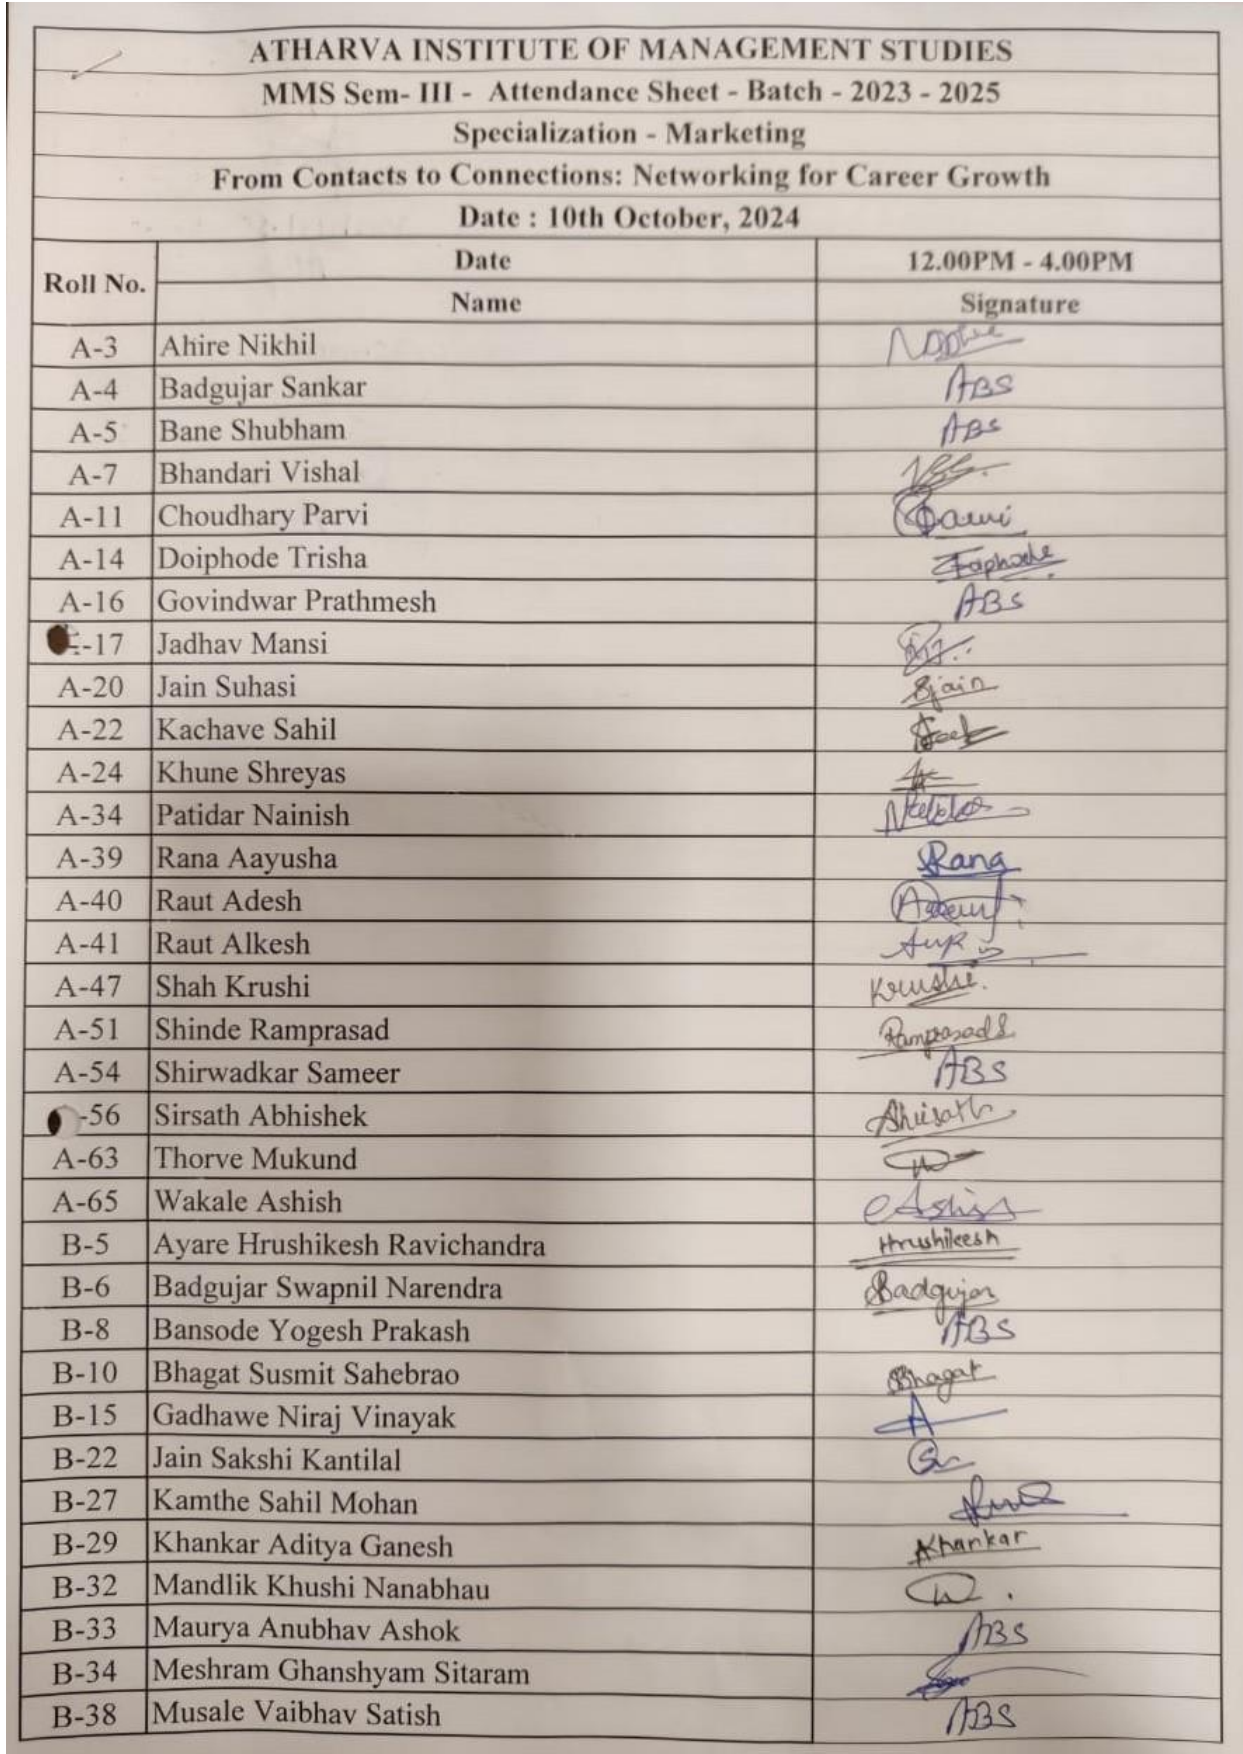 ATHARVA INSTITUTE OF MANAGEMENT STUDIES
MMS Sem- III - Attendance Sheet - Batch - 2023 - 2025
Specialization - Marketing
From Contacts to Connections: Networking for Career Growth
Date : 10th October, 2024
Roll No. Date 12.00PM - 4.00PM
Name Signature
A-3 Ahire Nikhil
A-4 Badgujar Sankar ABS
A-5 Bane Shubham ABS
A-7 Bhandari Vishal
A-11 Choudhary Parvi
A-14 Doiphode Trisha
A-16 Govindwar Prathmesh ABS
-17 Jadhav Mansi
A-20 Jain Suhasi Sjain
A-22 Kachave Sahil
A-24 Khune Shreyas
A-34 Patidar Nainish
A-39 Rana Aayusha Rana
A-40 Raut Adesh
A-41 Raut Alkesh
A-47 Shah Krushi Krushi.
A-51 Shinde Ramprasad Ramprasad S
A-54 Shirwadkar Sameer ABS
-56 Sirsath Abhishek
A-63 Thorve Mukund
A-65 Wakale Ashish
B-5 Ayare Hrushikesh Ravichandra Hrushikesh
B-6 Badgujar Swapnil Narendra Badgujar
B-8 Bansode Yogesh Prakash ABS
B-10 Bhagat Susmit Sahebrao Bhagat
B-15 Gadhawe Niraj Vinayak
B-22 Jain Sakshi Kantilal
B-27 Kamthe Sahil Mohan
B-29 Khankar Aditya Ganesh Khankar
B-32 Mandlik Khushi Nanabhau
B-33 Maurya Anubhav Ashok ABS
B-34 Meshram Ghanshyam Sitaram
B-38 Musale Vaibhav Satish ABS